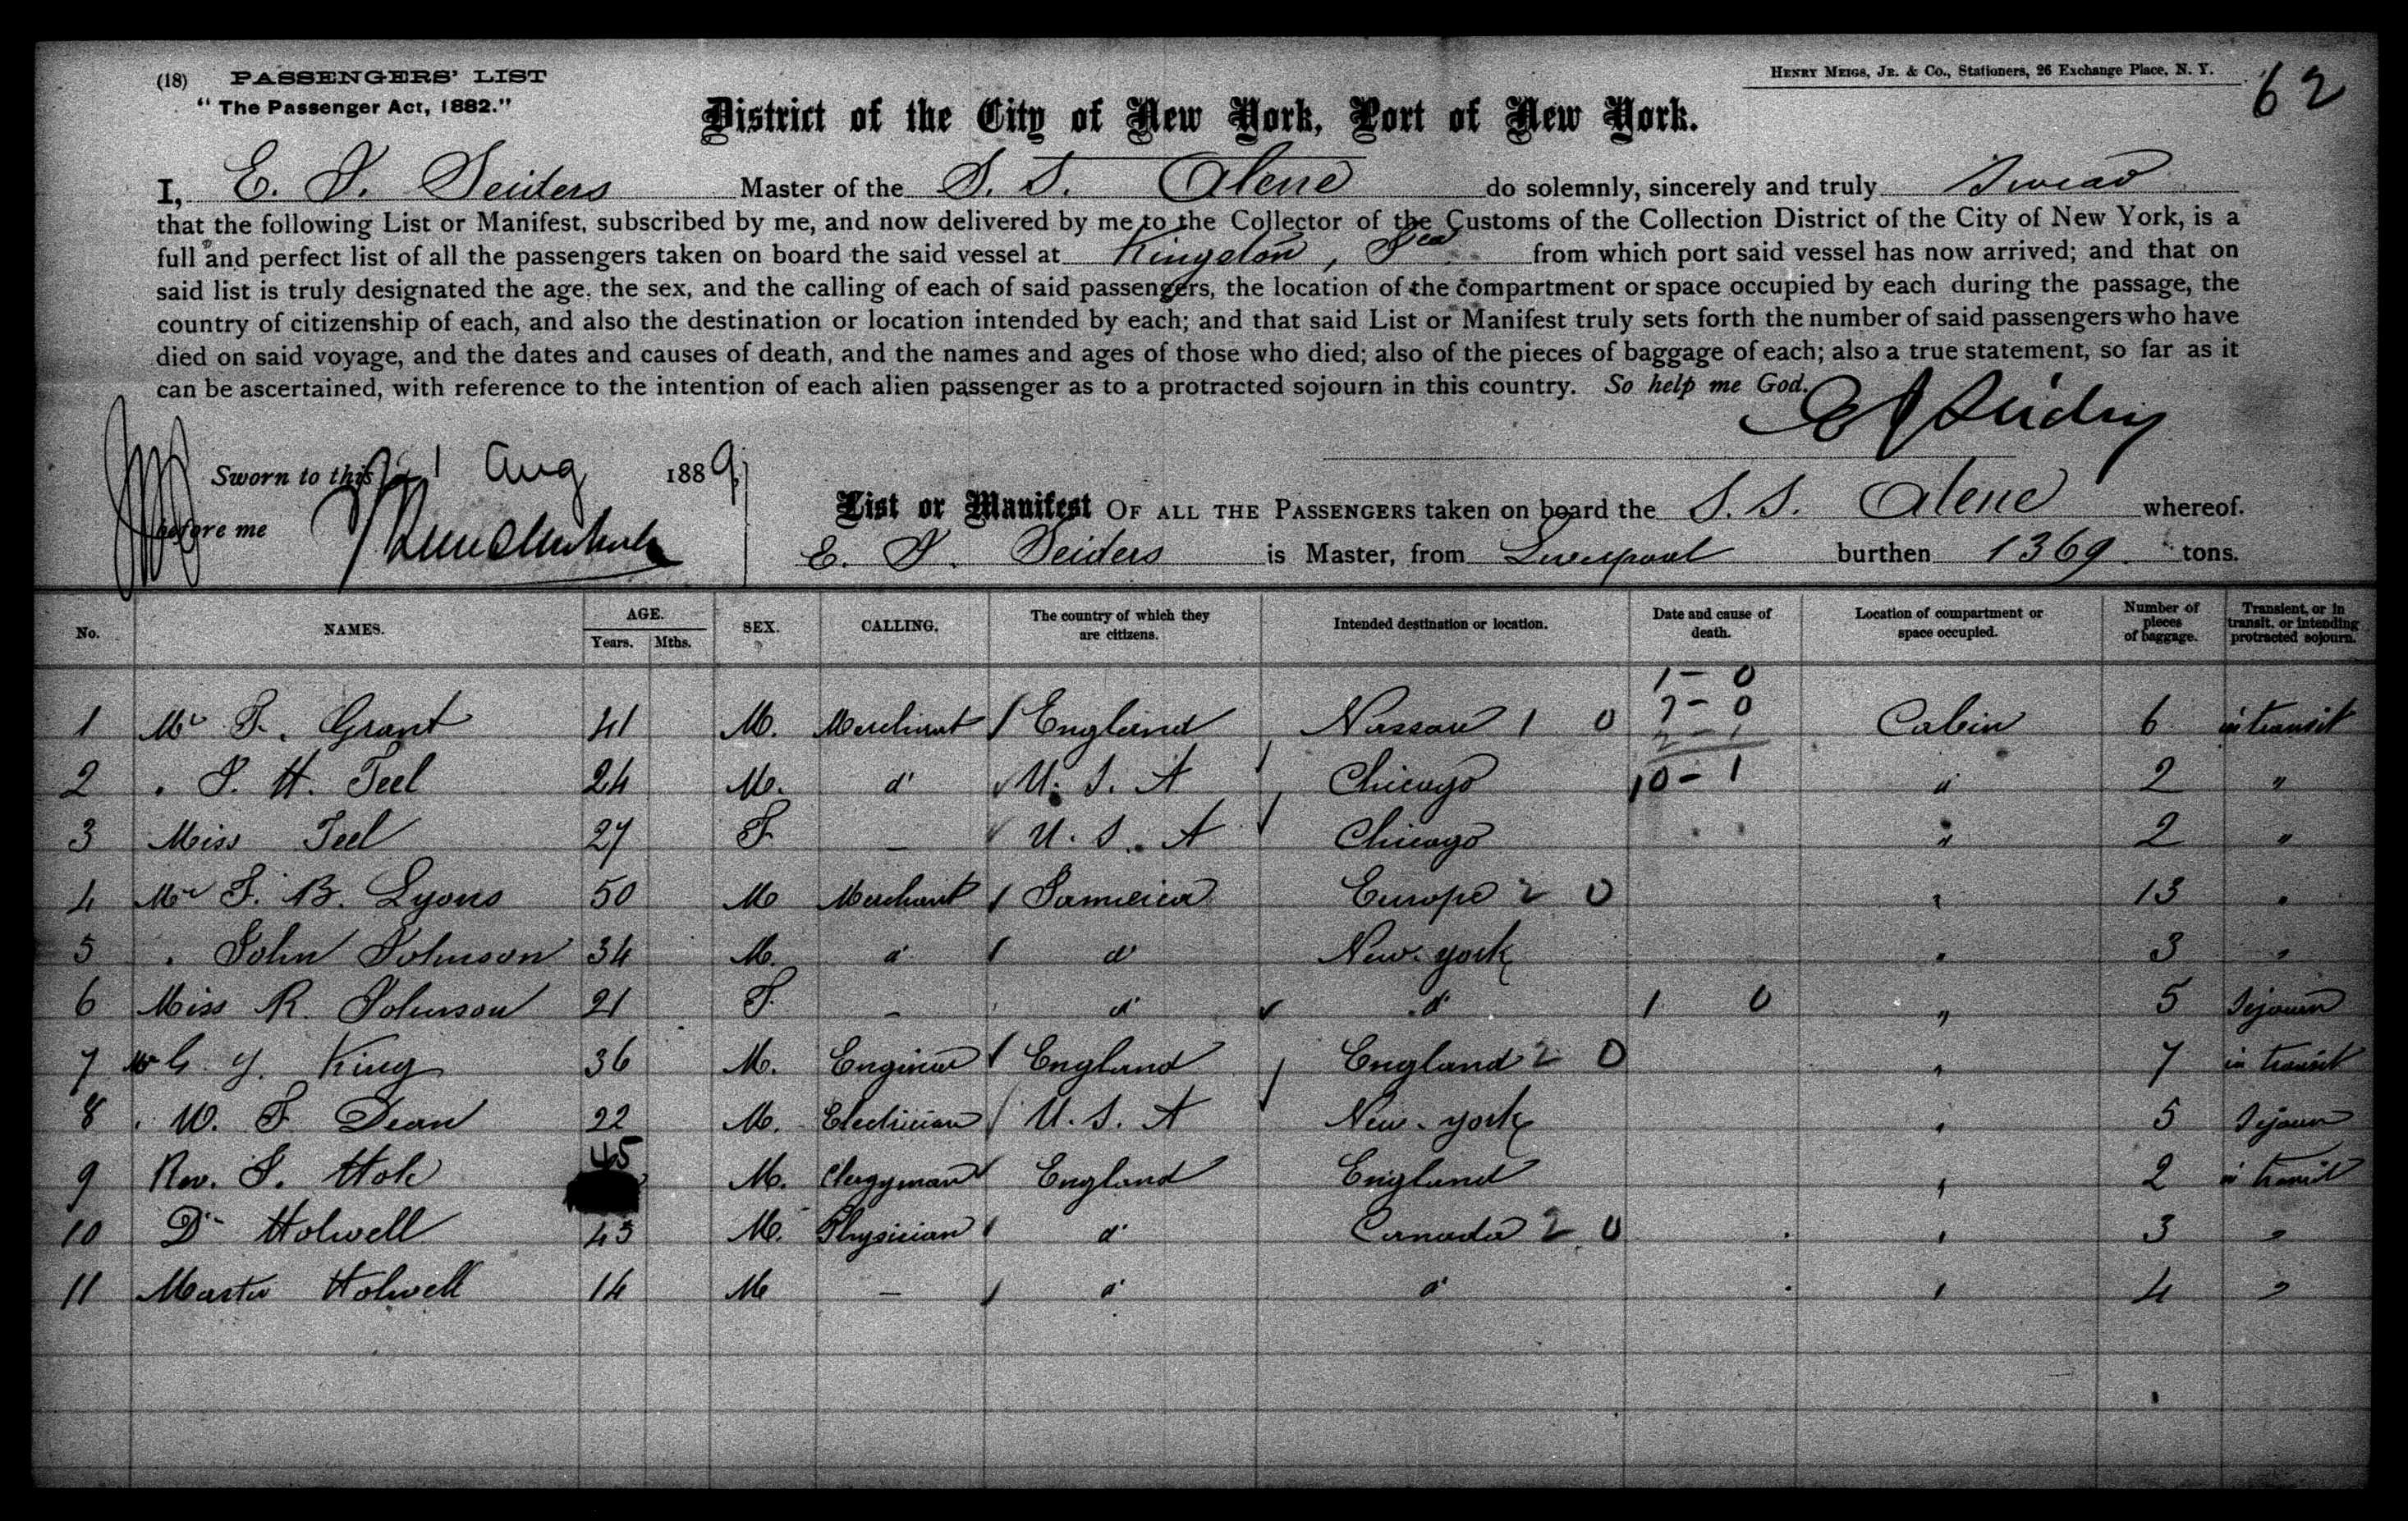 (18) PASSENGERS' LIST
HENRY MEIGS, JR. & Co., Stationers, 26 Exchange Place, N. Y.
62
"The Passenger Act, 1882."
District of the City of New York, Port of New York.
I, E. J. Seiders Master of the S. S. Alene do solemnly, sincerely and truly Swear
that the following List or Manifest, subscribed by me, and now delivered by me to the Collector of the Customs of the Collection District of the City of New York, is a
full and perfect list of all the passengers taken on board the said vessel at Kingston, Jca from which port said vessel has now arrived; and that on
said list is truly designated the age, the sex, and the calling of each of said passengers, the location of the compartment or space occupied by each during the passage, the
country of citizenship of each, and also the destination or location intended by each; and that said List or Manifest truly sets forth the number of said passengers who have
died on said voyage, and the dates and causes of death, and the names and ages of those who died; also of the pieces of baggage of each; also a true statement, so far as it
can be ascertained, with reference to the intention of each alien passenger as to a protracted sojourn in this country. So help me God.
E J Seiders
Sworn to this Aug 1889
before me
List or Manifest OF ALL THE PASSENGERS taken on board the S. S. Alene whereof
E. J. Seiders is Master, from Liverpool burthen 1369 tons.
No. NAMES. AGE. Years. Mths. SEX. CALLING. The country of which they are citizens. Intended destination or location. Date and cause of death. Location of compartment or space occupied. Number of pieces of baggage. Transient, or in transit, or intending protracted sojourn.
1 - 0
7 - 0
1 Mr F. Grant 41 M. Merchant England Nassau 1 0 2 - 1 Cabin 6 in transit
2 " J. H. Teel 24 M. do U. S. A Chicago 10 - 1 " 2 "
3 Miss Teel 27 F — U. S. A Chicago " 2 "
4 Mr F. B. Lyons 50 M Merchant Jamaica Europe 2 0 " 13 "
5 " John Johnson 34 M. do do New-york " 3 "
6 Miss R. Johnson 21 F. — do do 1 0 " 5 Sejourn
7 Mr G. Y. King 36 M. Engineer England England 2 0 " 7 in transit
8 " W. F. Dean 22 M. Electrician U. S. A New-york " 5 Sejourn
9 Rev. S. Hole 45 M. Clergyman England England " 2 in transit
10 Dr Holwell 43 M. Physician do Canada 2 0 " 3 "
11 Master Holwell 14 M — do do " 4 "